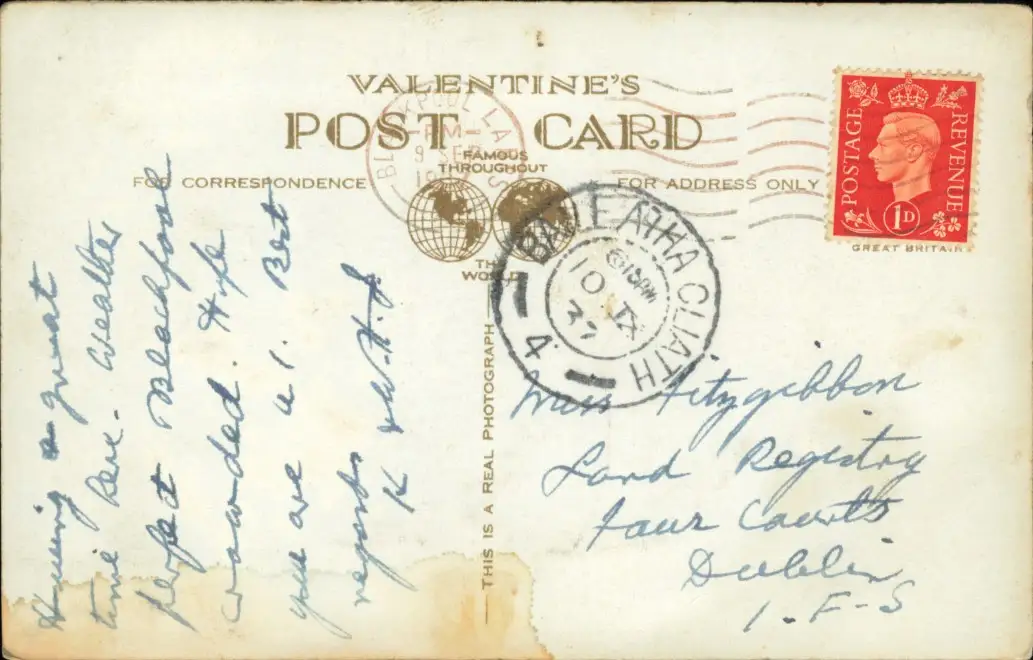 VALENTINE'S
POST CARD
FAMOUS
THROUGHOUT
THE
WORLD
FOR CORRESPONDENCE
FOR ADDRESS ONLY
POSTAGE
REVENUE
1D
GREAT BRITAIN
BLACKPOOL LANCS
PM
9 SEP
BAILE ATHA CLIATH
6 15PM
10 IX
37
4
THIS IS A REAL PHOTOGRAPH
Having a great
time here. Weather
perfect Blackpool
crowded. Hope
you are al. Best
regards
K
Miss Fitzgibbon
Land Registry
Four Courts
Dublin
I-F-S